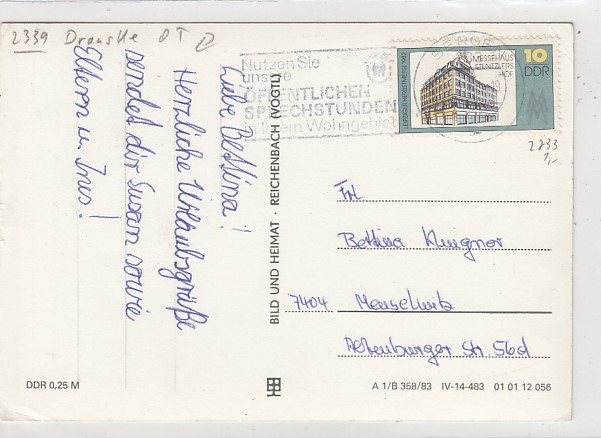 2339 Dranske OT
Nutzen Sie
unsere
ÖFFENTLICHEN
SPRECHSTUNDEN
in Ihrem Wohngebiet
LEIPZIGER HERBSTMESSE 1982
MESSEHAUS
STENTZLERS
HOF
10
DDR
2733
1,-
Liebe Bettina!
Herzliche Urlaubsgrüße
sendet dir Susan sowie
Eltern u. Ines!
BILD UND HEIMAT · REICHENBACH (VOGTL)
Frl.
Bettina
7404 Meuselwitz
Altenburger Str. 56d
DDR 0,25 M
A 1/B 358/83 IV-14-483 01 01 12 056